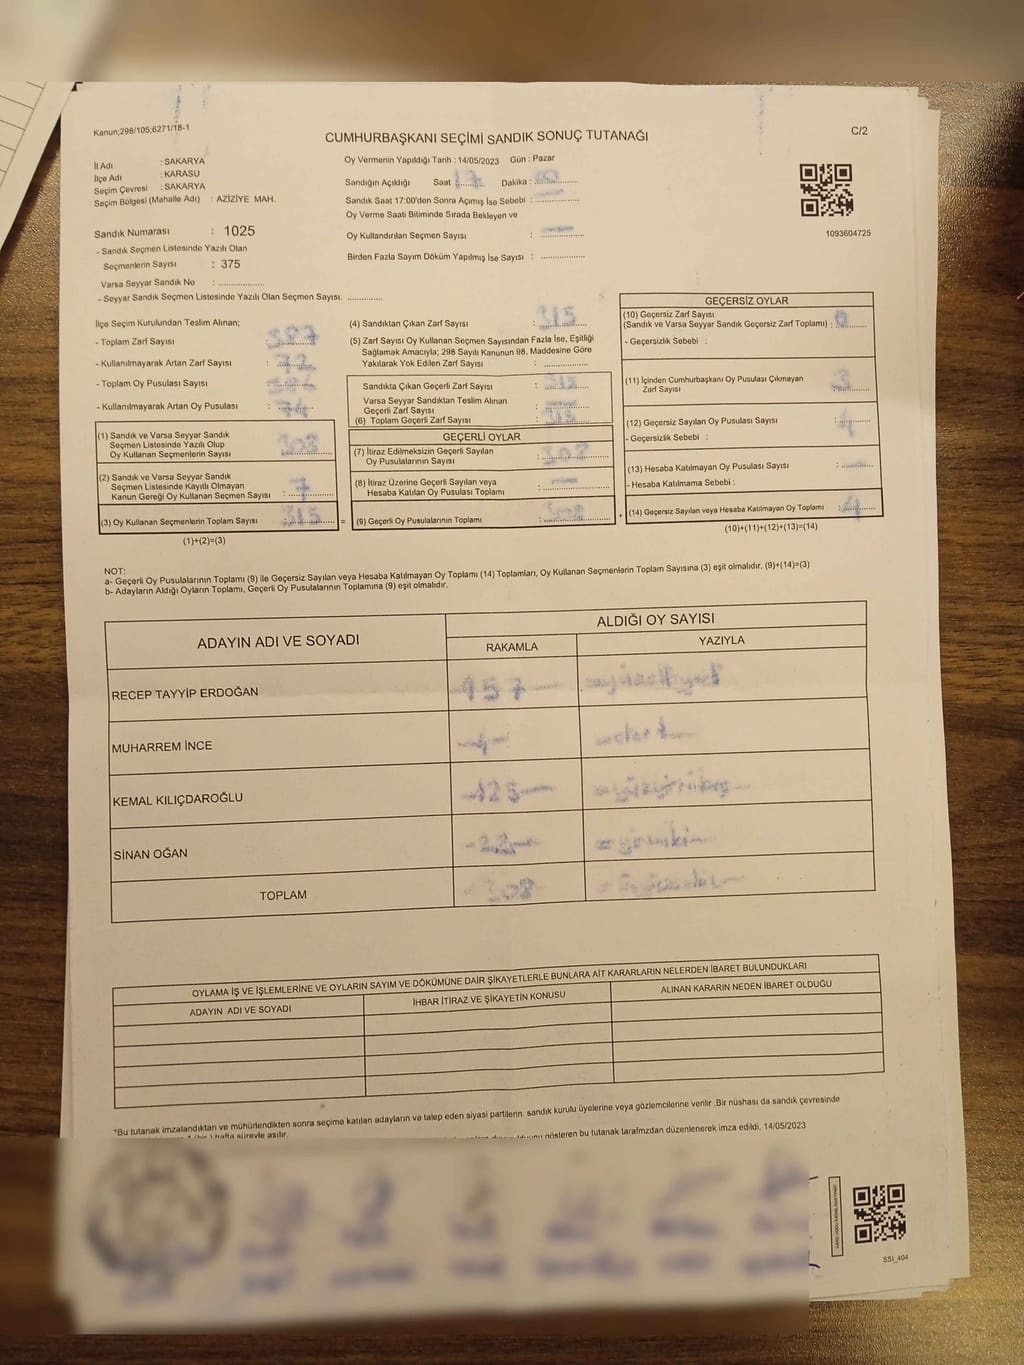 Kanun;298/105;6271/18-1
CUMHURBAŞKANI SEÇİMİ SANDIK SONUÇ TUTANAĞI
C/2
İl Adı : SAKARYA
İlçe Adı : KARASU
Seçim Çevresi : SAKARYA
Seçim Bölgesi (Mahalle Adı) : AZİZİYE MAH.
Sandık Numarası : 1025
- Sandık Seçmen Listesinde Yazılı Olan
Seçmenlerin Sayısı : 375
Varsa Seyyar Sandık No : ................
- Seyyar Sandık Seçmen Listesinde Yazılı Olan Seçmen Sayısı: ............
Oy Vermenin Yapıldığı Tarih : 14/05/2023 Gün : Pazar
Sandığın Açıldığı Saat 17 Dakika : 10
Sandık Saat 17:00'den Sonra Açımış İse Sebebi :
Oy Verme Saati Bitiminde Sırada Bekleyen ve
Oy Kullandırılan Seçmen Sayısı : —
Birden Fazla Sayım Döküm Yapılmış İse Sayısı : ................
1093604725
İlçe Seçim Kurulundan Teslim Alınan;
- Toplam Zarf Sayısı : 387
- Kullanılmayarak Artan Zarf Sayısı : 72
- Toplam Oy Pusulası Sayısı :
- Kullanılmayarak Artan Oy Pusulası : 74
(1) Sandık ve Varsa Seyyar Sandık
Seçmen Listesinde Yazılı Olup
Oy Kullanan Seçmenlerin Sayısı : 308
(2) Sandık ve Varsa Seyyar Sandık
Seçmen Listesinde Kayıllı Olmayan
Kanun Gereği Oy Kullanan Seçmen Sayısı : 7
(3) Oy Kullanan Seçmenlerin Toplam Sayısı : 315 =
(1)+(2)=(3)
(4) Sandıktan Çıkan Zarf Sayısı : 315
(5) Zarf Sayısı Oy Kullanan Seçmen Sayısından Fazla İse, Eşitliği
Sağlamak Amacıyla; 298 Sayılı Kanunun 98. Maddesine Göre
Yakılarak Yok Edilen Zarf Sayısı : ................
Sandıkta Çıkan Geçerli Zarf Sayısı : 315
Varsa Seyyar Sandıktan Teslim Alınan
Geçerli Zarf Sayısı :
(6) Toplam Geçerli Zarf Sayısı : 315
GEÇERLİ OYLAR
(7) İtiraz Edilmeksizin Geçerli Sayılan
Oy Pusulalarının Sayısı : 308
(8) İtiraz Üzerine Geçerli Sayılan veya
Hesaba Katılan Oy Pusulası Toplamı : —
(9) Geçerli Oy Pusulalarının Toplamı : 308 +
GEÇERSİZ OYLAR
(10) Geçersiz Zarf Sayısı
(Sandık ve Varsa Seyyar Sandık Geçersiz Zarf Toplamı) : 0
- Geçersizlik Sebebi :
(11) İçinden Cumhurbaşkanı Oy Pusulası Çıkmayan
Zarf Sayısı : 3
(12) Geçersiz Sayılan Oy Pusulası Sayısı : 4
- Geçersizlik Sebebi :
(13) Hesaba Katılmayan Oy Pusulası Sayısı : —
- Hesaba Katılmama Sebebi :
(14) Geçersiz Sayılan veya Hesaba Katılmayan Oy Toplamı : 4
(10)+(11)+(12)+(13)=(14)
NOT:
a- Geçerli Oy Pusulalarının Toplamı (9) ile Geçersiz Sayılan veya Hesaba Katılmayan Oy Toplamı (14) Toplamları, Oy Kullanan Seçmenlerin Toplam Sayısına (3) eşit olmalıdır. (9)+(14)=(3)
b- Adayların Aldığı Oyların Toplamı, Geçerli Oy Pusulalarının Toplamına (9) eşit olmalıdır.
ADAYIN ADI VE SOYADI
ALDIĞI OY SAYISI
RAKAMLA
YAZIYLA
RECEP TAYYİP ERDOĞAN 157
MUHARREM İNCE 4 dört
KEMAL KILIÇDAROĞLU 125 yüzyirmibeş
SİNAN OĞAN 22 yirmiiki
TOPLAM 308 üçyüzsekiz
OYLAMA İŞ VE İŞLEMLERİNE VE OYLARIN SAYIM VE DÖKÜMÜNE DAİR ŞİKAYETLERLE BUNLARA AİT KARARLARIN NELERDEN İBARET BULUNDUKLARI
ADAYIN ADI VE SOYADI
İHBAR İTİRAZ VE ŞİKAYETİN KONUSU
ALINAN KARARIN NEDEN İBARET OLDUĞU
*Bu tutanak imzalandıktan ve mühürlendikten sonra seçime katılan adayların ve talep eden siyasi partilerin sandık kurulu üyelerine veya gözlemcilerine verilir .Bir nüshası da sandık çevresinde
hafta süreyle asılır.
gösteren bu tutanak tarafımızdan düzenlenerek imza edildi. 14/05/2023
SSI_404